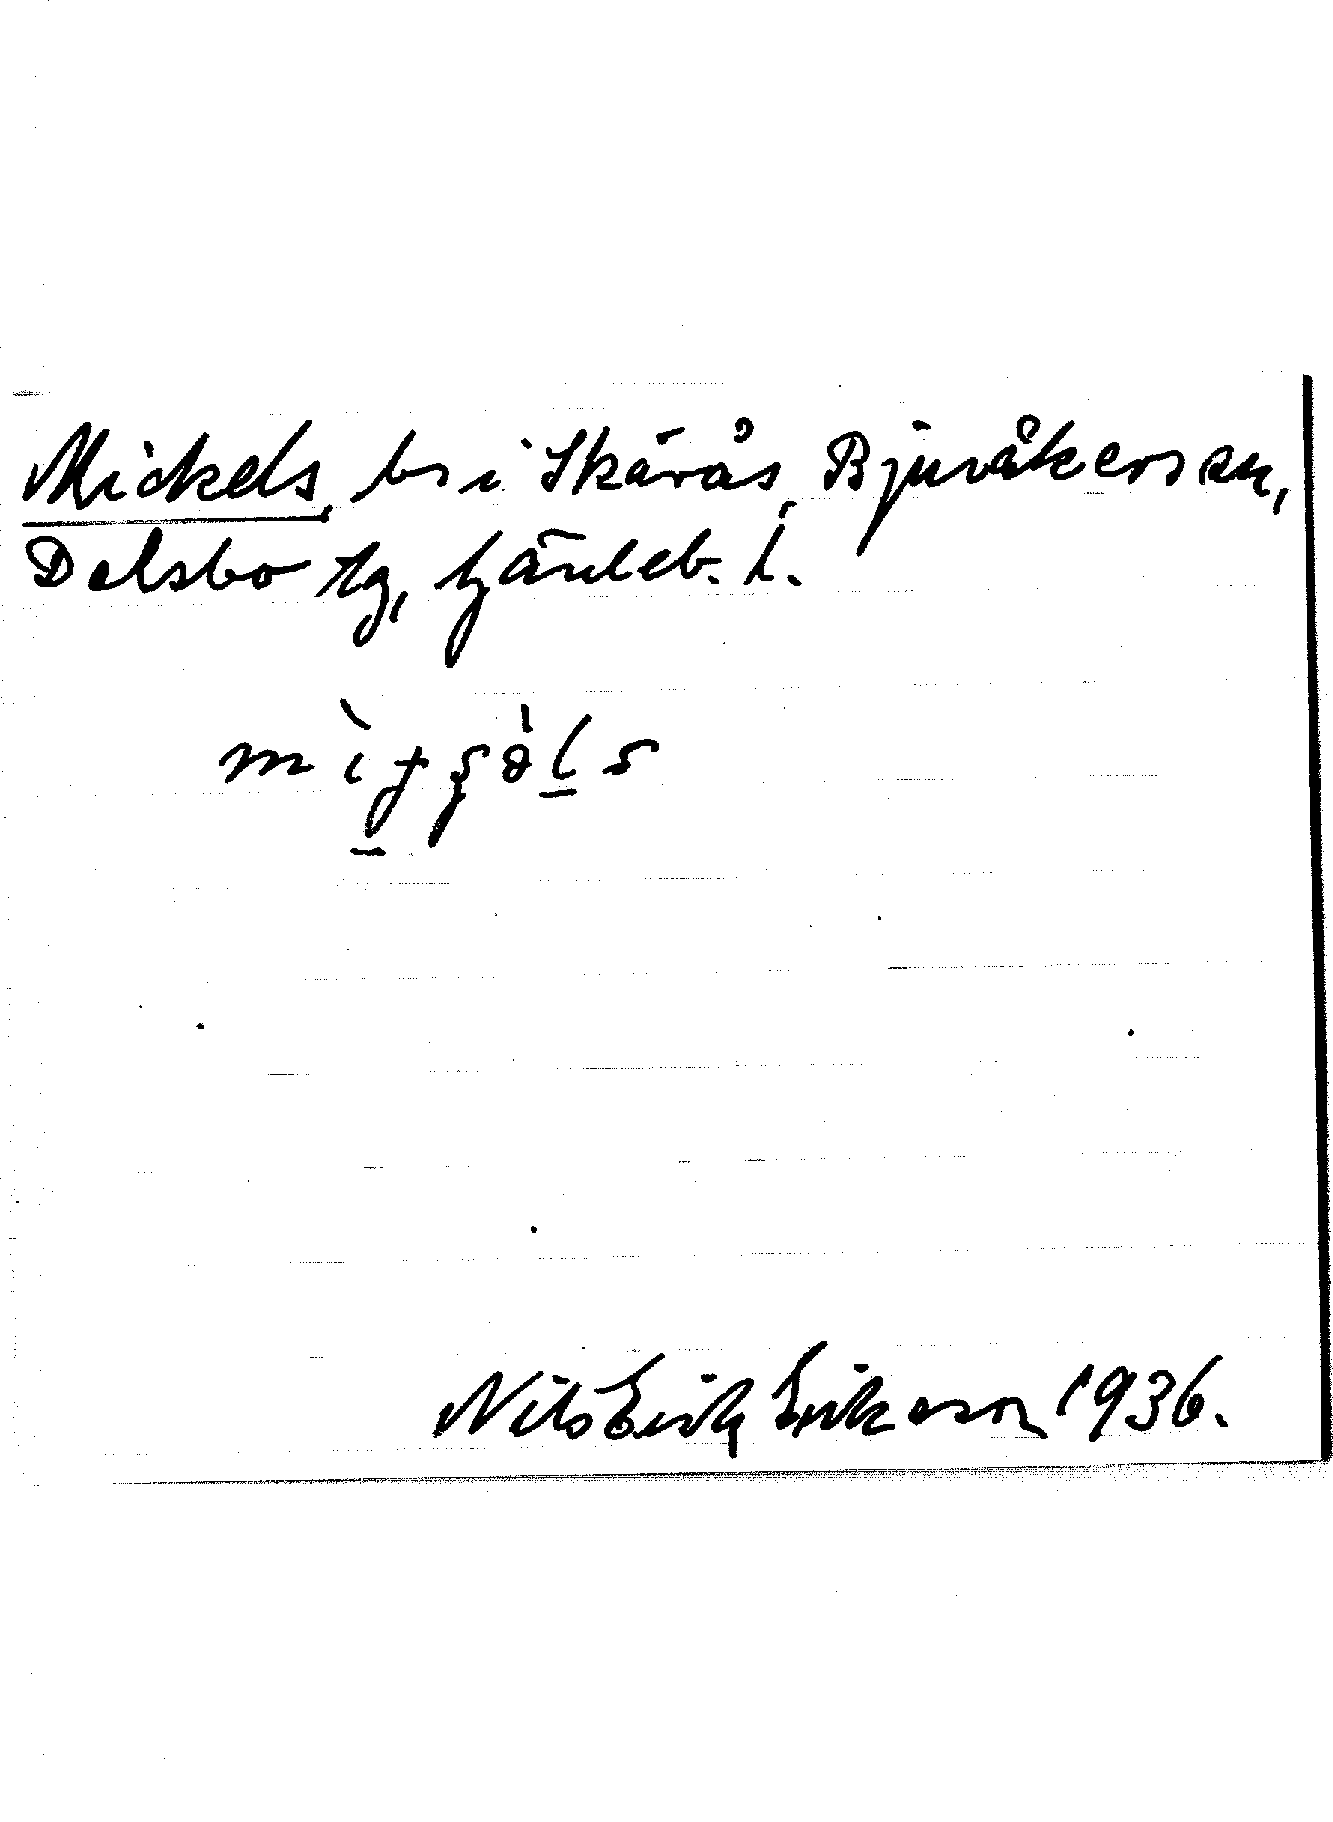 Mickels, bs i Skärås, Bjuråkers sn,
Delsbo tg, Gävleb. l.
Nils Erik Erikson 1936.